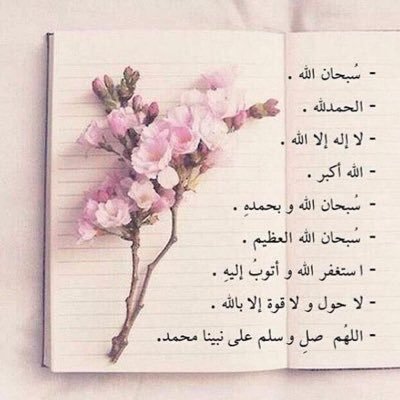 - سُبحان الله .
- الحمدلله .
- لا إله إلا الله .
- الله أكبر .
- سُبحان الله و بحمدهِ .
- سُبحان الله العظيم .
- استغفر الله و أتوبُ إليهِ .
- لا حول و لا قوة إلا بالله .
- اللهُم صلِ و سلم على نبينا محمد.